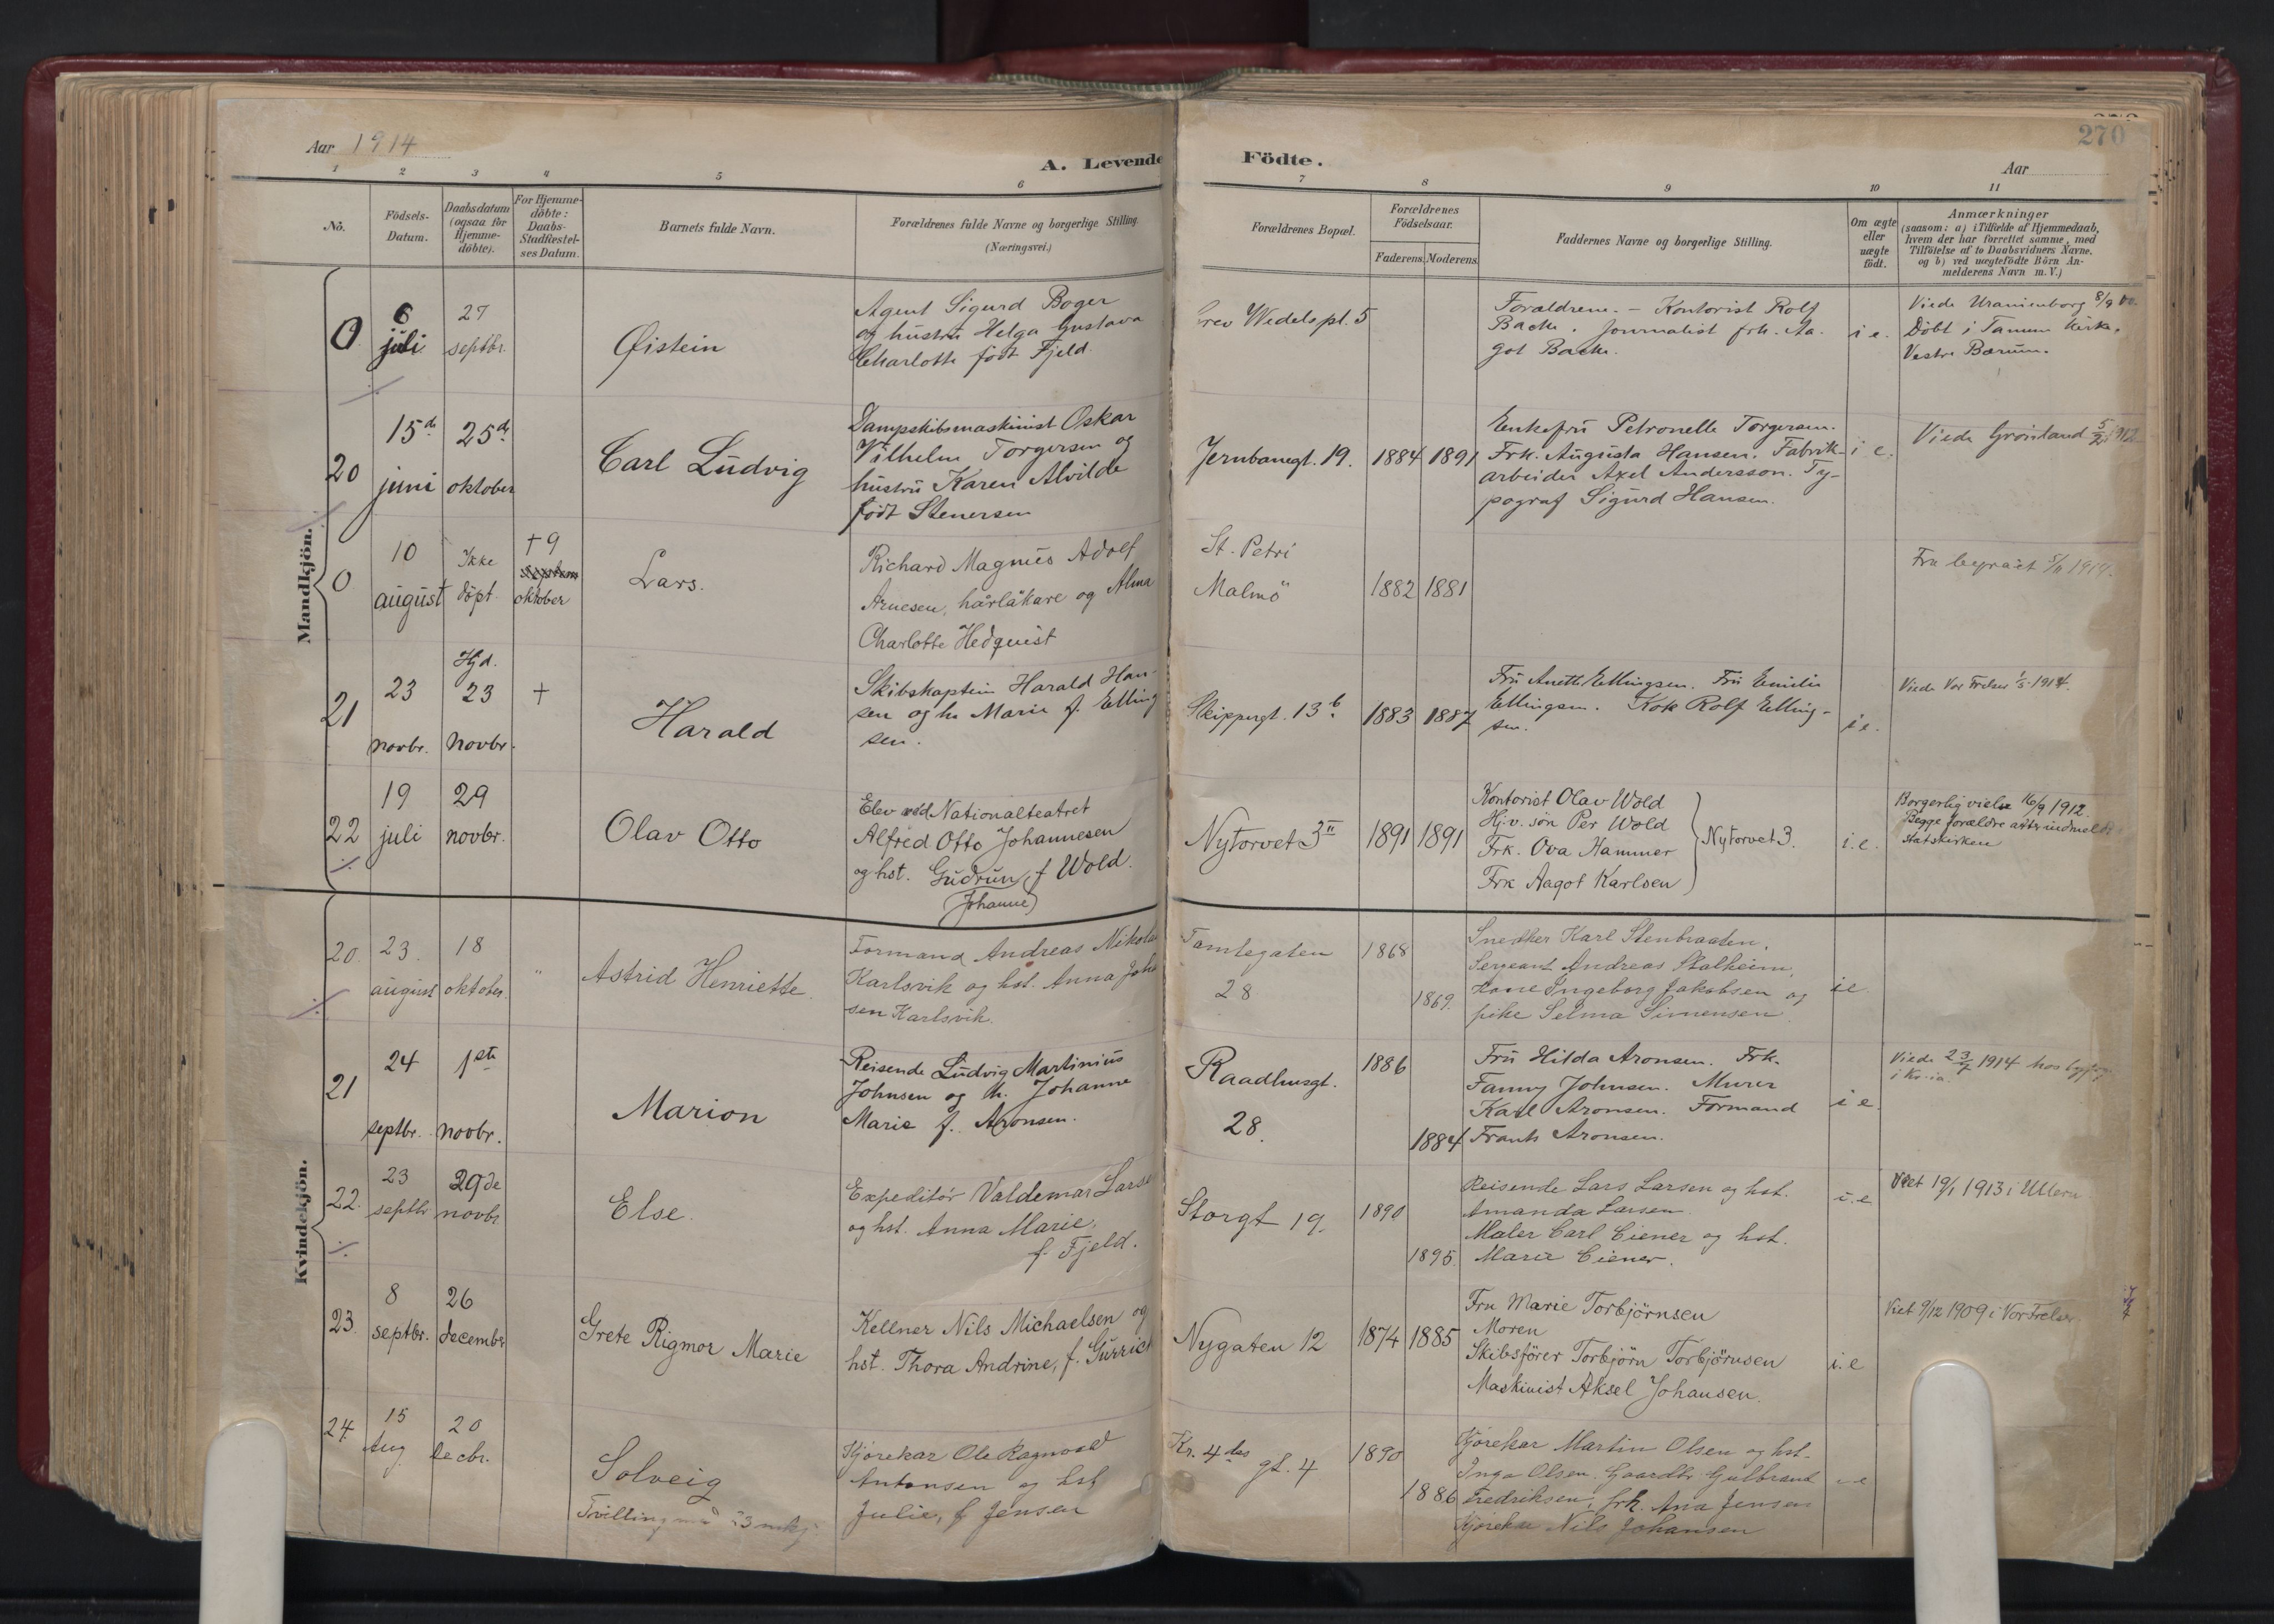 270
Aar 1914
A. Levende Födte.
Aar
1 2 3 4 5 6 7 8 9 10 11
Nö.
Födsels-
Datum.
Daabsdatum
(ogsaa for
Hjemme-
döbte).
For Hjemme-
döbte:
Daabs-
Stadfæstel-
ses Datum.
Barnets fulde Navn.
Forældrenes fulde Navne og borgerlige Stilling.
(Næringsvei.)
Forældrenes Bopæl.
Forældrenes
Födselsaar.
Faderens. Moderens.
Faddernes Navne og borgerlige Stilling.
Om ægte
eller
uægte
födt.
Anmærkninger
(saasom: a) i Tilfælde af Hjemmedaab,
hvem der har forrettet samme, med
Tilföielse af to Daabsvidners Navne.
og b) ved uægtefödte Börn An-
melderens Navn m.V.)
Mandkjön.
0
6
juli
27
septbr.
Øistein
Agent Sigurd Boger
og hustru Helga Gustava
Charlotte født Fjeld
Grev Wedels pl. 5
Forældrene. - Kontorist Rolf
Backe. Journalist frk. Aa-
got Backe.
i e.
Viede Uranienborg 8/9
Döbt i Tanum kirke,
Vestre Bærum.
20
15de
juni
25de
oktober
Carl Ludvig
Dampskibsmaskinist Oskar
Vilhelm Torgersen og
hustru Karen Alvilde
født Stenersen
Jernbanegt. 19.
1884 1891
Enkefru Petronelle Torgersen.
Frk. Augusta Hansen. Fabrik-
arbeider Axel Andersson. Ty-
pograf Sigurd Hansen.
i e.
Viede Grønland 5/2 1912
0
10
august
Ikke
döpt
† 9
oktober
Lars.
Richard Magnus Adolf
Arnesen, hårläkare og Alma
Charlotte Hedquist
St. Petri
Malmö
1882 1881
Fra begravet 5/11 1914.
21
23
novbr.
Hjd.
23
novbr.
†
Harald
Skibskaptein Harald Han-
sen og h. Marie f. Elling
sen.
Skippergt. 13 b.
1883 1887
Fru Anette Ellingsen. Fru Emilie
Ellingsen. Kok Rolf Elling-
sen.
i e.
Viede Vor Frelser 1/5 1914.
22
19
juli
29
novbr.
Olav Otto
Elev ved Nationalteatret
Alfred Otto Johannesen
og hst. Gudrun f Wold.
(Johanne)
Nytorvet 3 II
1891 1891
Kontorist Olav Wold
Hj.v. søn Per Wold
Frk. Ova Hammer
Frk Aagot Karlsen
Nytorvet 3.
i.e.
Borgerlig vielse 16/9 1912.
Begge forældre atter indmeldt
statskirken
Kvindekjön.
20.
23.
august
18
oktober.
"
Astrid Henriette.
Formand Andreas Nikolai
Karlsvik og hst. Anna Joha
sen Karlsvik.
Tomtegaten
28
1868
1869.
Snedker Karl Stenbraaten.
Sergeant Andreas Stalheim,
Kone Ingeborg Jakobsen og
pike Selma Simensen
i e
21
24
septbr.
1ste
novbr.
Marion
Reisende Ludvig Martinius
Johnsen og h. Johanne
Marie f. Aronsen.
Raadhusgt.
28.
1886
1884
Fru Hilda Aronsen. Frk.
Fanny Johnsen. Murer
Karl Aronsen. Formand
Frank Aronsen.
i e.
Viede 23/7 1914 hos byfogden
i Kr.ia.
22.
23
septbr
29de
novbr.
Else.
Expeditör Valdemar Larse
og hst. Anna Marie,
f. Fjeld.
Storgt 19.
1890
1895.
Reisende Lars Larsen og hst.
Amanda Larsen.
Maler Carl Ciener og hst.
Marie Ciener.
i. e
Viet 19/1 1913 i Ullern
23.
8
septbr.
26
decembr
Grete Rigmor Marie
Kellner Nils Michaelsen og
hst. Thora Andrine, f. Gurrich
Nygaten 12
1874 1885
Fru Marie Torbjörnsen
Moren
Skibsförer Torbjörn Torbjörnsen
Maskinist Aksel Johansen.
i. e
Viet 9/12 1909 i Vor Frelser
24.
15
Aug
20
decbr.
Solveig
Tvilling med 23 mkj.
Kjørekar Ole Ragnvald
Antonsen og hst
Julie, f Jensen
Kr. 4des gt. 4
1890
1886
Kjørekar Martin Olsen og hst.
Inga Olsen. Gaardbr. Gulbrand
Fredriksen, frk. Ana Jensen
Kjørekar Nils Johansen